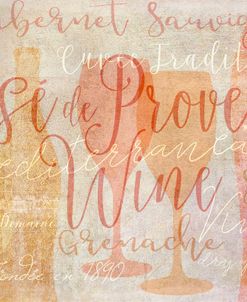 abernet Sauvig
Cuvée Tradit
sé de Prove
editerranea
Wine
Domaine
Grenache
ondée en 1890